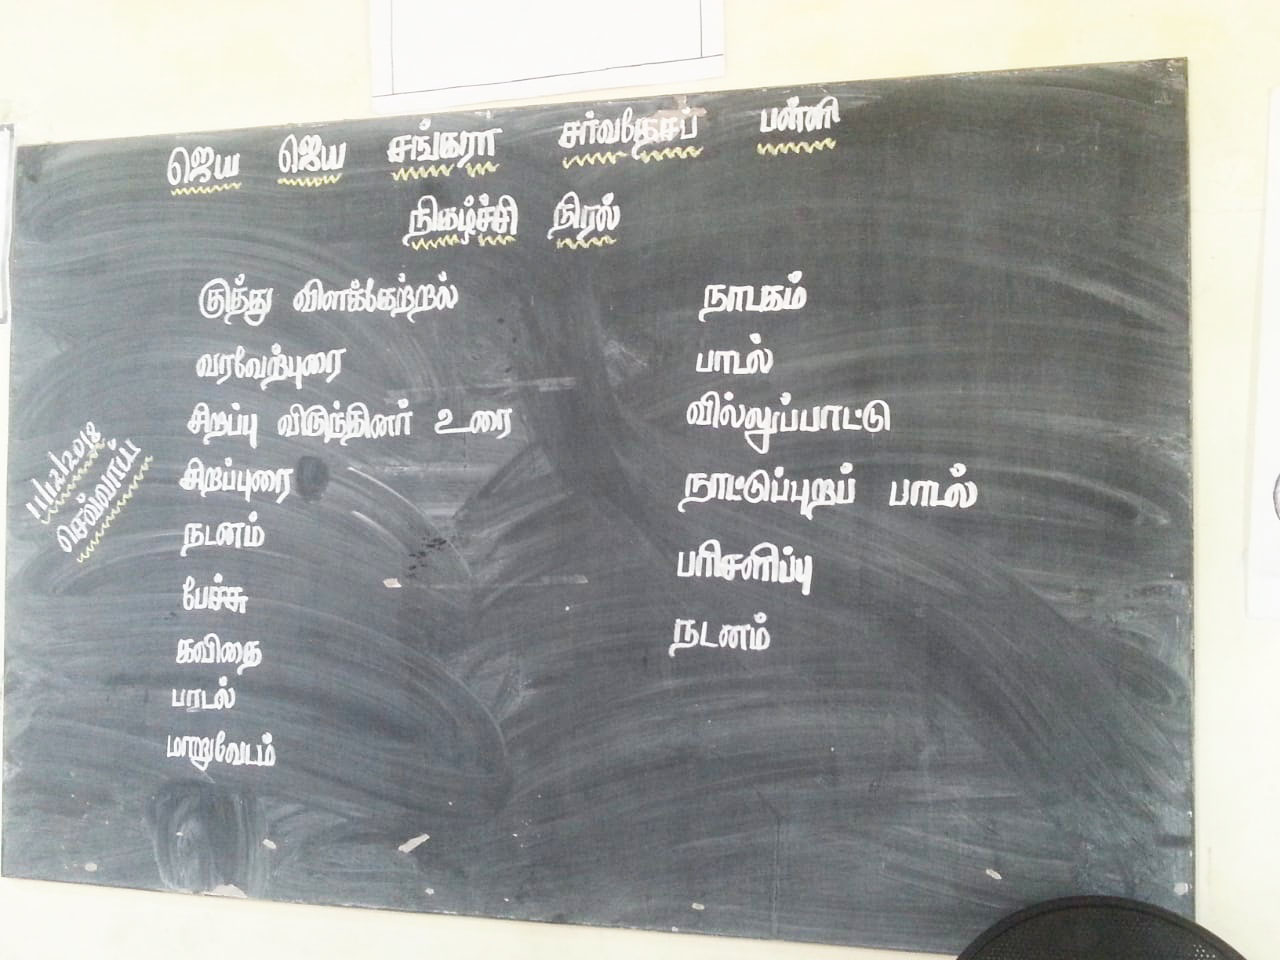 ஜெய ஜெய சங்கரா சர்வதேசப் பள்ளி
நிகழ்ச்சி நிரல்
11/12/2018
செவ்வாய்
குத்து விளக்கேற்றல்
வரவேற்புரை
சிறப்பு விருந்தினர் உரை
சிறப்புரை
நடனம்
பேச்சு
கவிதை
பாடல்
மாறுவேடம்
நாடகம்
பாடல்
வில்லுப்பாட்டு
நாட்டுப்புறப் பாடல்
பரிசளிப்பு
நடனம்